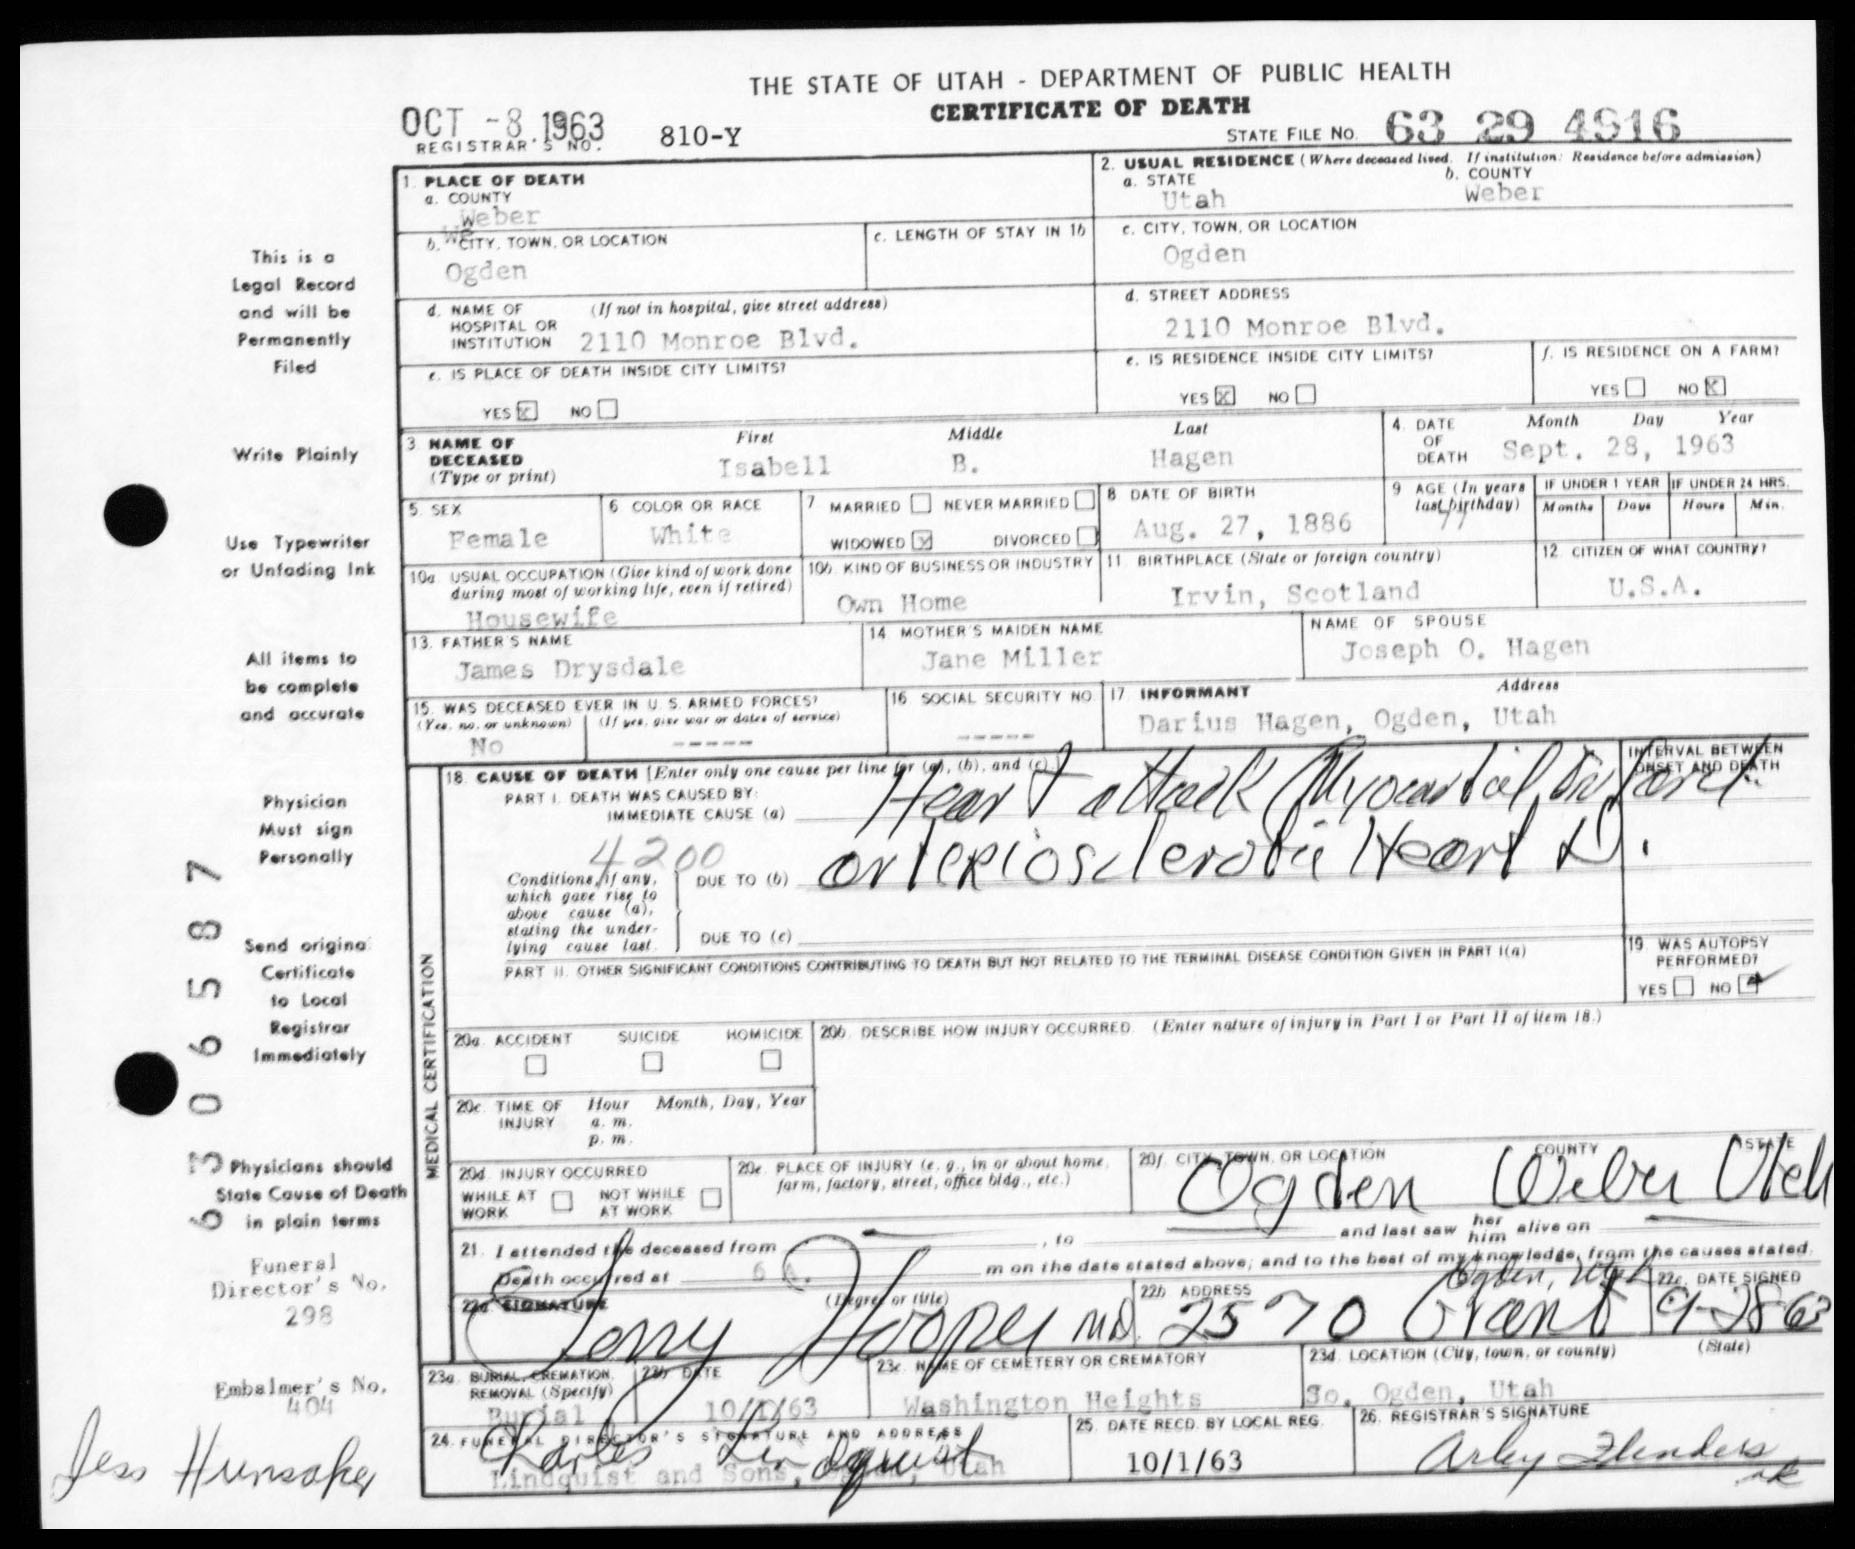 THE STATE OF UTAH - DEPARTMENT OF PUBLIC HEALTH
CERTIFICATE OF DEATH
OCT -8 1963
REGISTRAR'S NO. 810-Y
STATE FILE NO. 63 29 4916
1. PLACE OF DEATH
a. COUNTY
Weber
We
b. CITY, TOWN, OR LOCATION
Ogden
c. LENGTH OF STAY IN 1b
d. NAME OF HOSPITAL OR INSTITUTION (If not in hospital, give street address)
2110 Monroe Blvd.
e. IS PLACE OF DEATH INSIDE CITY LIMITS?
YES X NO
2. USUAL RESIDENCE (Where deceased lived. If institution: Residence before admission)
a. STATE
Utah
b. COUNTY
Weber
c. CITY, TOWN, OR LOCATION
Ogden
d. STREET ADDRESS
2110 Monroe Blvd.
e. IS RESIDENCE INSIDE CITY LIMITS?
YES X NO
f. IS RESIDENCE ON A FARM?
YES NO X
3. NAME OF DECEASED (Type or print)
First Middle Last
Isabell B. Hagen
4. DATE OF DEATH
Month Day Year
Sept. 28, 1963
5. SEX
Female
6 COLOR OR RACE
White
7 MARRIED NEVER MARRIED
WIDOWED X DIVORCED
8 DATE OF BIRTH
Aug. 27, 1886
9 AGE (In years last birthday)
77
IF UNDER 1 YEAR
Months Days
IF UNDER 24 HRS.
Hours Min.
10a. USUAL OCCUPATION (Give kind of work done during most of working life, even if retired)
Housewife
10b. KIND OF BUSINESS OR INDUSTRY
Own Home
11 BIRTHPLACE (State or foreign country)
Irvin, Scotland
12. CITIZEN OF WHAT COUNTRY?
U.S.A.
13. FATHER'S NAME
James Drysdale
14 MOTHER'S MAIDEN NAME
Jane Miller
NAME OF SPOUSE
Joseph O. Hagen
15. WAS DECEASED EVER IN U. S. ARMED FORCES?
(Yes, no, or unknown) (If yes, give war or dates of service)
No -----
16 SOCIAL SECURITY NO.
-----
17 INFORMANT Address
Darius Hagen, Ogden, Utah
MEDICAL CERTIFICATION
18. CAUSE OF DEATH [Enter only one cause per line for (a), (b), and (c).
INTERVAL BETWEEN ONSET AND DEATH
PART I. DEATH WAS CAUSED BY:
IMMEDIATE CAUSE (a) Heart attack (Myocardial Infarct
4200
Conditions, if any, which gave rise to above cause (a), stating the underlying cause last.
DUE TO (b) arteriosclerotic Heart D.
DUE TO (c)
PART II. OTHER SIGNIFICANT CONDITIONS CONTRIBUTING TO DEATH BUT NOT RELATED TO THE TERMINAL DISEASE CONDITION GIVEN IN PART I(a)
19. WAS AUTOPSY PERFORMED?
YES NO
20a. ACCIDENT SUICIDE HOMICIDE
20b. DESCRIBE HOW INJURY OCCURRED. (Enter nature of injury in Part I or Part II of item 18.)
20c. TIME OF INJURY Hour Month, Day, Year
a. m.
p. m.
20d. INJURY OCCURRED
WHILE AT WORK NOT WHILE AT WORK
20e. PLACE OF INJURY (e. g., in or about home, farm, factory, street, office bldg., etc.)
20f. CITY, TOWN, OR LOCATION COUNTY STATE
Ogden Weber Utah
21. I attended the deceased from , to and last saw her him alive on
Death occurred at 6 A. m on the date stated above; and to the best of my knowledge, from the causes stated.
22a SIGNATURE (Degree or title)
Hooper MD
22b ADDRESS
2570 Grant
Ogden, Utah
22c. DATE SIGNED
9-28-63
23a. BURIAL, CREMATION, REMOVAL (Specify)
Burial
23b DATE
10/1/63
23c. NAME OF CEMETERY OR CREMATORY
Washington Heights
23d. LOCATION (City, town, or county) (State)
So. Ogden, Utah
24. FUNERAL DIRECTOR'S SIGNATURE AND ADDRESS
Charles Lindquist
Lindquist and Sons, Ogden, Utah
25. DATE RECD. BY LOCAL REG.
10/1/63
26. REGISTRAR'S SIGNATURE
Arley Flinders
This is a
Legal Record
and will be
Permanently
Filed
Write Plainly
Use Typewriter
or Unfading Ink
All items to
be complete
and accurate
Physician
Must sign
Personally
Send original
Certificate
to Local
Registrar
Immediately
Physicians should
State Cause of Death
in plain terms
6 3 0 6 5 8 7
Funeral
Director's No.
298
Embalmer's No.
404
Jess Hunsaker